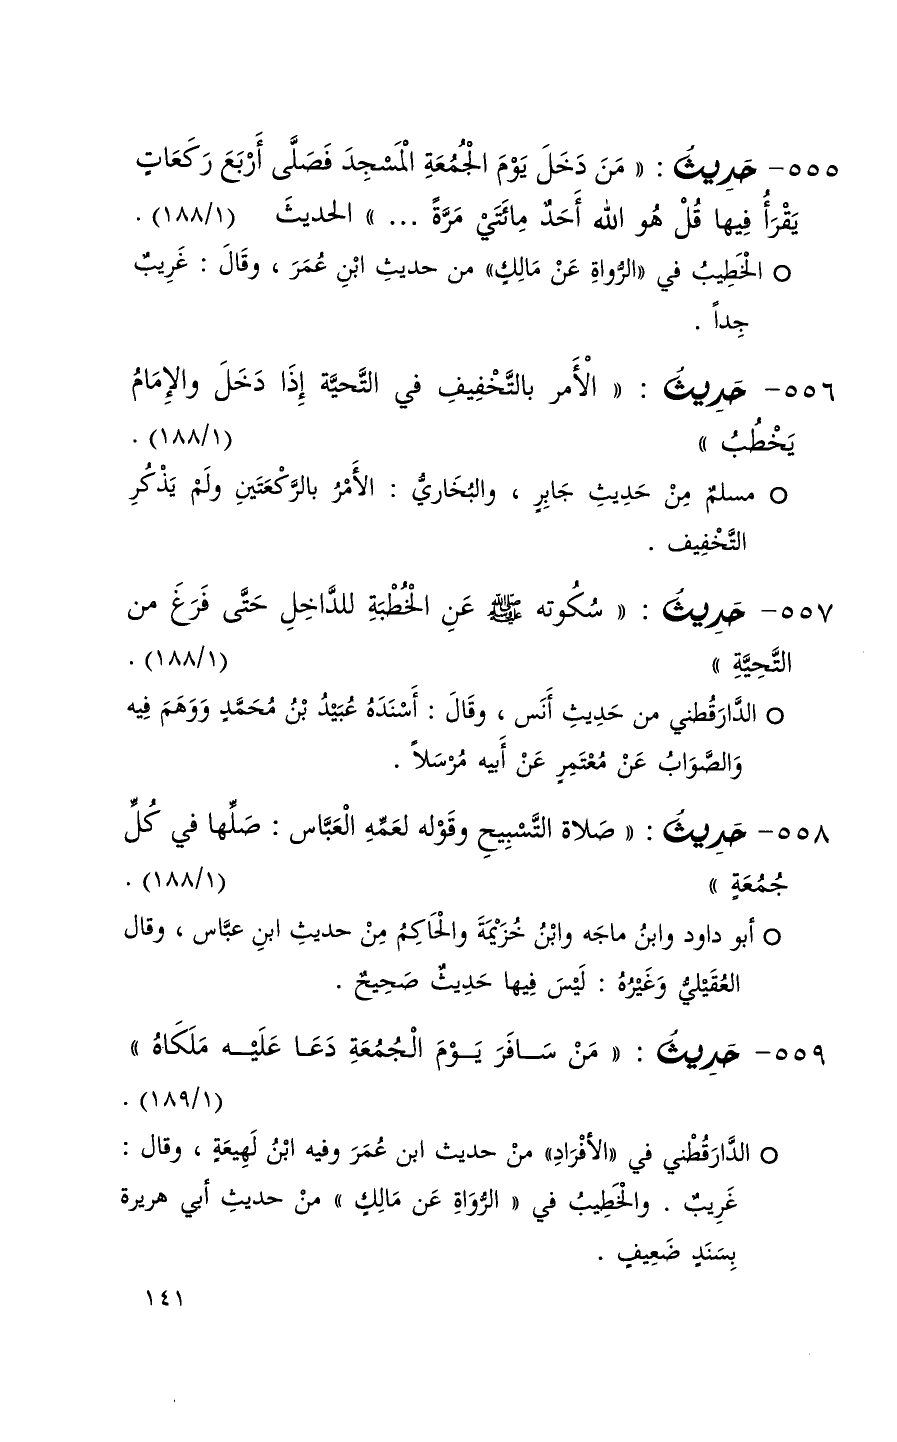 ٥٥٥- حَدِيثُ : « مَنَ دَخَلَ يَوْمَ الْجُمُعَةِ الْمَسْجِدَ فَصَلَّى أَرْبَعَ رَكَعَاتٍ
يَقْرَأُ فِيها قُلْ هُو الله أَحَدٌ مِائَتَيْ مَرَّةً ... » الحديثَ (١/١٨٨) .
○ الْخَطِيبُ في «الرُّواةِ عَنْ مَالِكٍ» من حديثِ ابْنِ عُمَرَ ، وقَالَ : غَرِيبٌ
جِداً .
٥٥٦- حَدِيثُ : « الْأَمر بالتَّخْفِيفِ في التَّحيَّة إِذَا دَخَلَ والإِمَامُ
يَخْطُبُ » (١/١٨٨) .
○ مسلمٌ مِنْ حَدِيثِ جَابِرٍ ، والبُخَاريُّ : الأَمْرُ بالرَّكْعَتَينِ ولَمْ يَذْكُرِ
التَّخْفِيف .
٥٥٧- حَدِيثُ : « سُكُوته ﷺ عَنِ الْخُطْبَةِ للدَّاخِلِ حَتَّى فَرَغَ من
التَّحِيَّةِ » (١/١٨٨) .
○ الدَّارَقُطني من حَدِيثِ أَنَس ، وقَالَ : أَسْنَدَهُ عُبَيْدُ بْنُ مُحَمَّدٍ وَوَهَمَ فِيه
وَالصَّوَابُ عَنْ مُعْتَمِرٍ عَنْ أَبيه مُرْسَلاً .
٥٥٨- حَدِيثُ : « صَلاة التَّسْبِيحِ وقَوْله لعَمِّهِ الْعَبَّاس : صَلِّها في كُلِّ
جُمُعَةٍ » (١/١٨٨) .
○ أبو داود وابنُ ماجَه وابْنُ خُزَيْمَةَ والْحَاكِمُ مِنْ حديثِ ابنِ عبَّاس ، وقال
العُقَيْليُّ وَغَيْرُهُ : لَيْسَ فِيها حَدِيثٌ صَحِيحٌ .
٥٥٩- حَدِيثُ : « مَنْ سَـافَرَ يَـوْمَ الْجُمُعَةِ دَعَـا عَلَيْـه مَلَكَاهُ »
(١/١٨٩) .
○ الدَّارَقُطْني في «الأفْرَادِ» منْ حديث ابن عُمَرَ وفيه ابْنُ لَهِيعَةٍ ، وقال :
غَرِيبٌ . والْخَطِيبُ في « الرُّوَاةِ عَن مَالِكٍ » منْ حديثِ أبي هريرة
بِسَنَدٍ ضَعِيفٍ .
١٤١